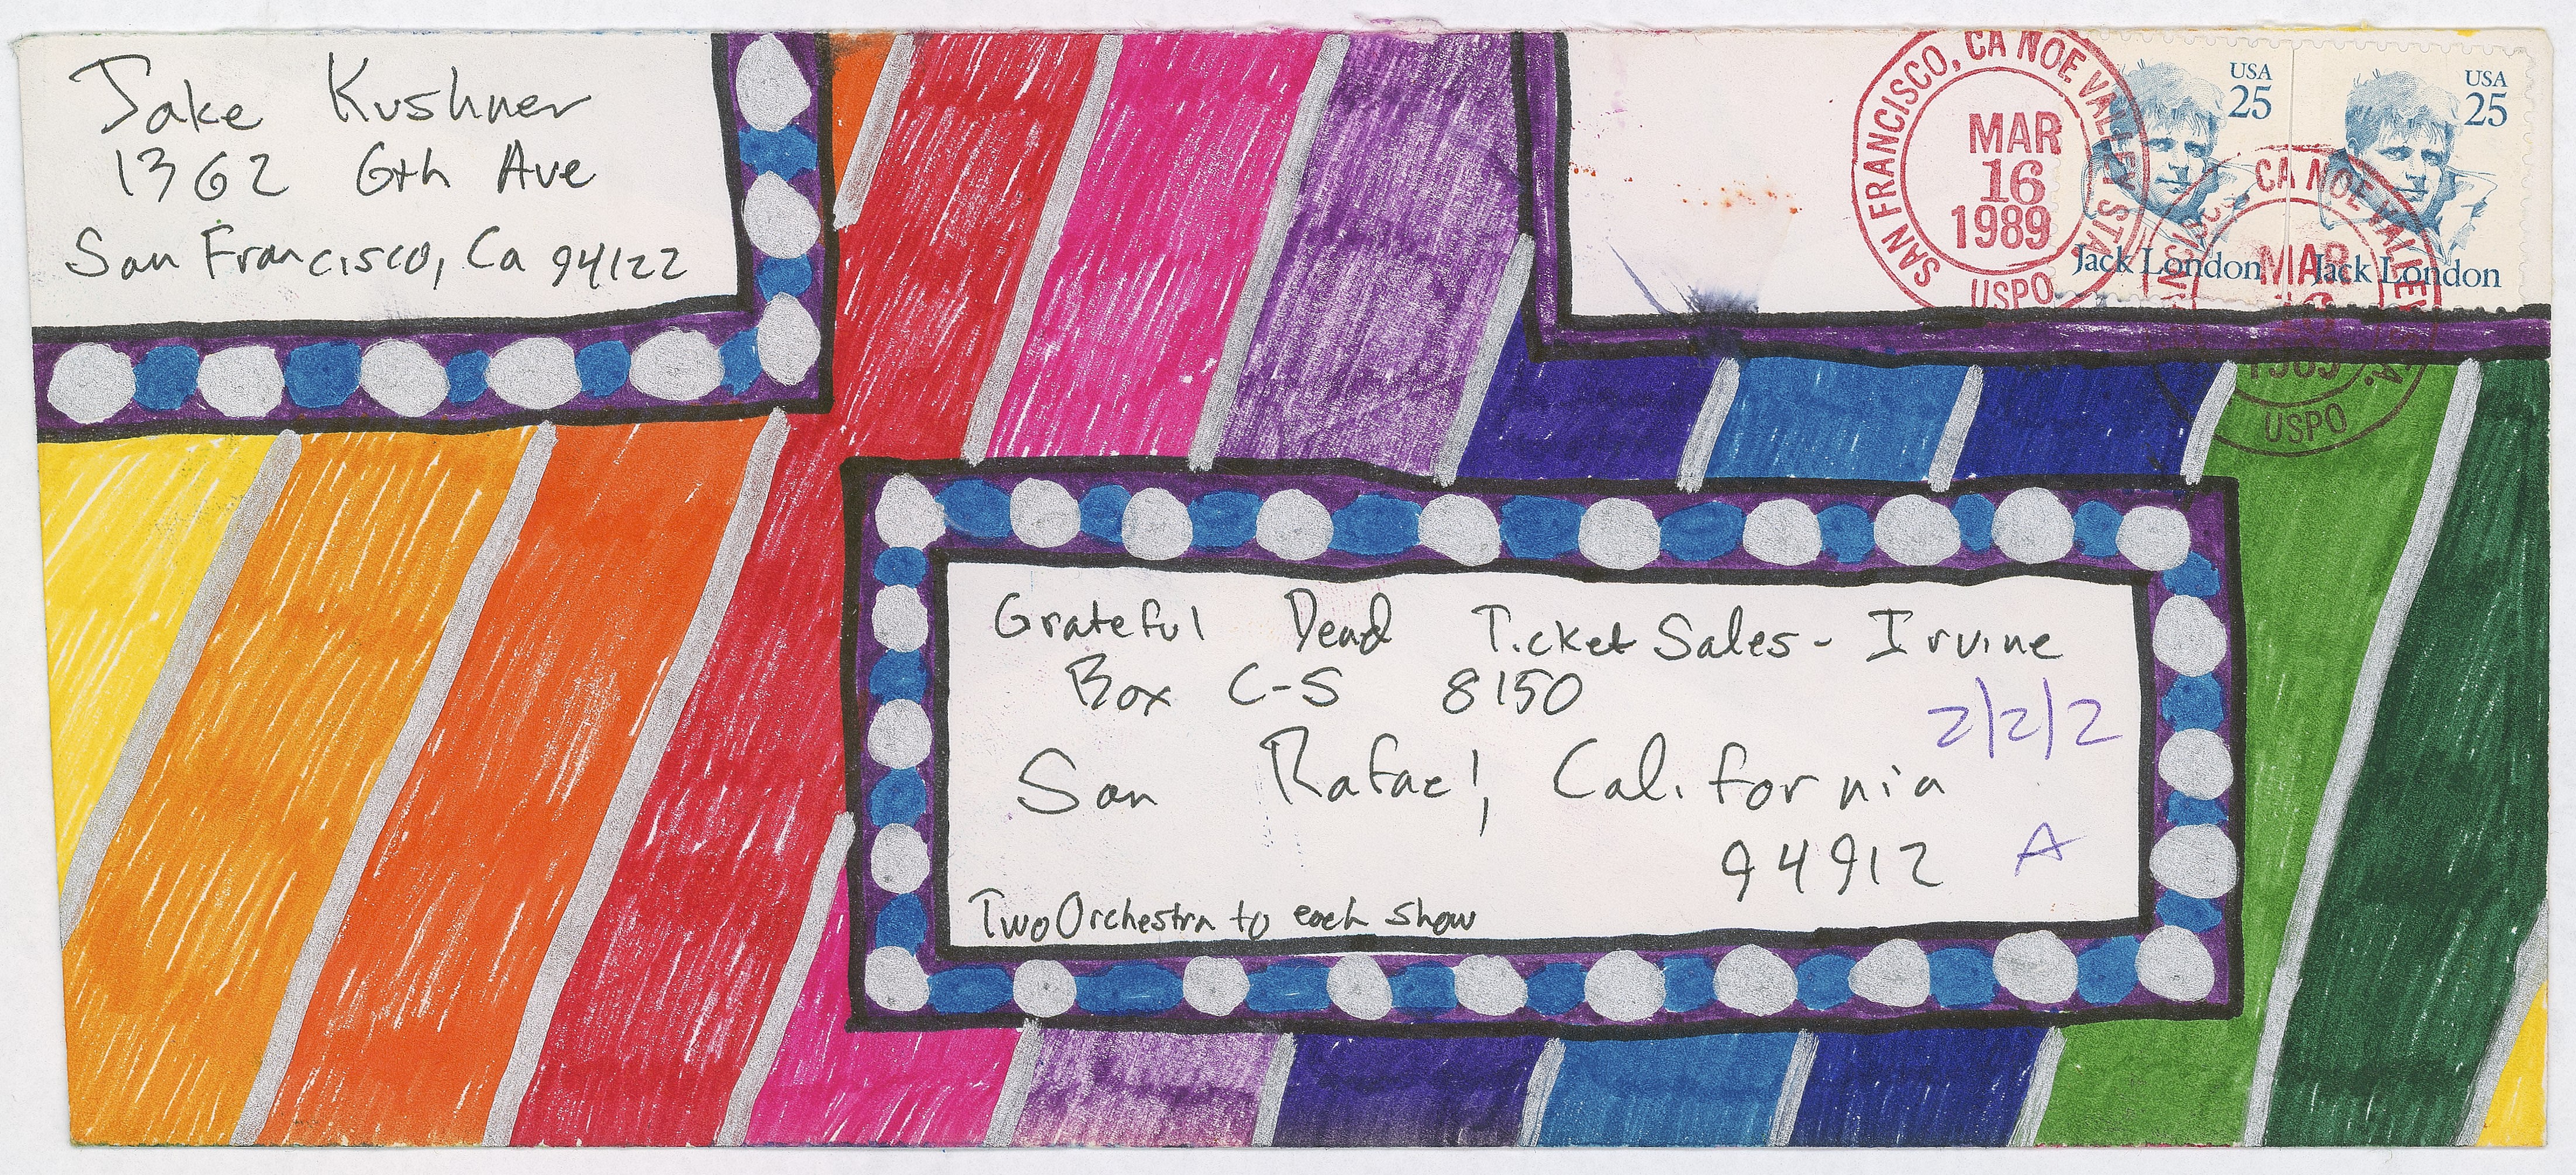 Jake Kushner
1362 6th Ave
San Francisco, Ca 94122
SAN FRANCISCO, CA NOE VALLEY STA.
MAR
16
1989
USPO
USA
25
Jack London
USA
25
Jack London
CA NOE VALLEY STA.
MAR
16
1989
USPO
Grateful Dead Ticket Sales - Irvine
Box C-S 8150
2/2/2
San Rafael, California
94912 A
Two Orchestra to each show